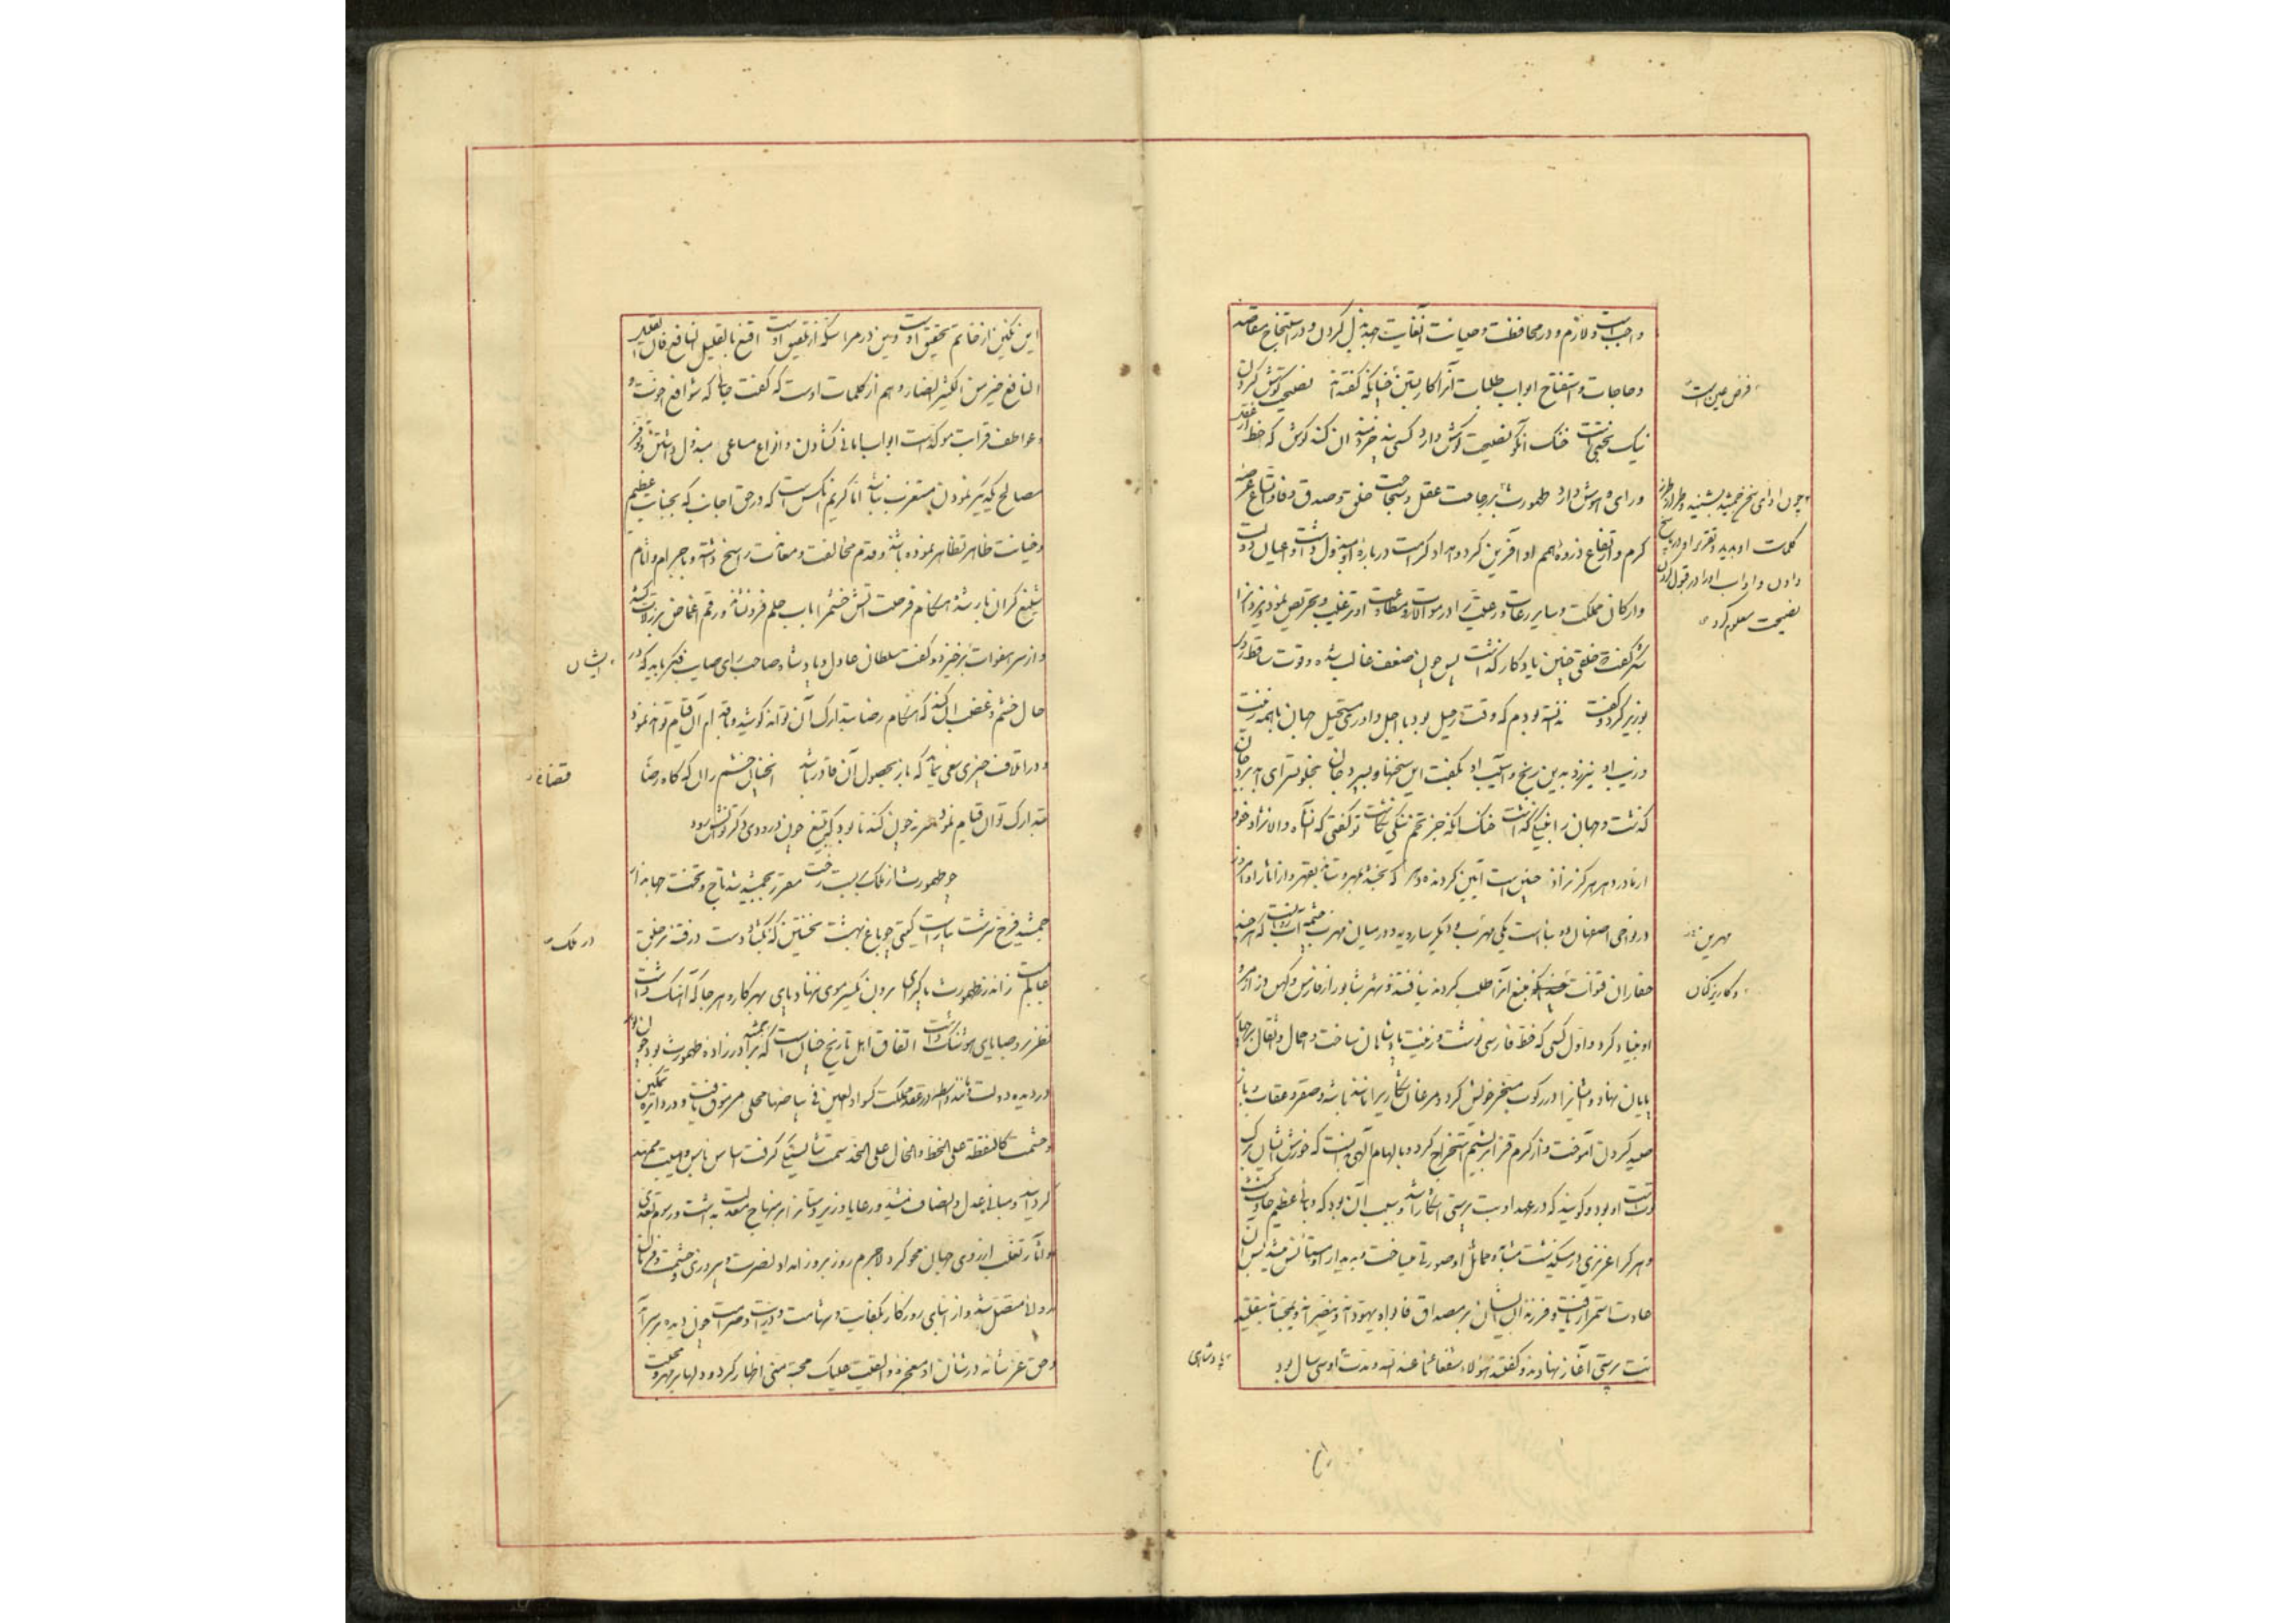 واجبست و لازم و در محافظت و صیانت آن غایت جهد بذل کردن و در استنجاح مقاصد
و حاجات و استفتاح ابواب طلبات آنرا کار بستن چنانکه گفته‌اند نصیحت گوش کردن
نیک بختیست خنک آنکو نصیحت گوش دارد کسی پند خردمندان کند گوش که حظ از عقل
و رای و هوش دارد طهمورث بر رجاحت عقل و سجاحت خلق و صدق وفا و اتساع عرصه
کرم و ارتفاع ذروه همم او آفرین کرد و امداد کرامت درباره او مبذول داشت و اعیان دولت
و ارکان مملکت و سایر رعات و رعیت را در موالات و مطاوعت او ترغیب و تحریض نمود و یزدانرا
شکر گفت خلقی چنین یادگار گذاشت پس چون ضعف غالب شده و قوت ساقط روی
بوزیر کرد و گفت ندانسته بودم که وقت رحیل بود با اجل داوری مستحیل جهان با همه
و زیب او نیرزد بدین رنج و آسیب او بگفت این سخنها و بسپرد جان
گذشت و جهان را بنیکی گذاشت خنک آنکه جز تخم نیکی نکاشت تو گفتی که آن شاه والانژاد خود
از مادر دهر هرگز نزاد چنین است آیین گردنده دهر که بخشد بمهر و ستاند بقهر و از آثار او
در نواحی اصفهان دو بناست یکی مهرین و دیگر سارویه و در میان مهرین چشمه آب روانست که هر چند
حفاران قنوات منبع آنرا طلب کردند نیافتند و شهر شابور از فارس و کهن دز از مرو
او بنیاد کرد و اول کسی که خط فارسی نوشت و زینت پادشاهان ساخت و احمال و اثقال بر چهار
پایان نهاد و ایشانرا در رکوب مسخر خویش کرد و مرغان شکاریرا مانند باشه و صقر و عقاب و باز
صید کردن آموخت و از کرم قز ابریشم استخراج کرد و بالهام الهی دانست که خورش ایشان برگ
توتست او بود و گویند که در عهد او بت پرستی آشکارا شد و سبب آن بود که وبائی عظیم حادث گشت
و هر کرا عزیزی در میگذشت مشابه و مماثل او صورتی میساخت و بدیدار او مستأنس میشد پس آن
عادت استمرار یافت و فرزندان ایشان بر مصداق فابواه یهودانه و ینصرانه و یمجسانه بتقلید
بت پرستی آغاز نهادند و گفتند هؤلاء شفعائنا عند الله و مدت او سی سال بود
فرض عین است
چون ادای سخن جمشید بشنید و طراز طرز
کلمات او بدید و تقریر او در پاسخ
دادن و آداب او در قبول کردن
نصیحت معلوم کرد
مهرین
و کاریزکنان
پادشاهی
این نگین از خاتم تحقیق اوست و این در مراسله از تلفیق اوست اقنع بالقلیل النافع فان القلیل
النافع خیر من الکثیر الضار و هم از کلمات اوست که گفت جائی که شوافع اخوت و
عواطف قرابت موکدست ابواب امانی گشادن و انواع مساعی مبذول داشتن و در
مصالح یکدیگر نمودن مستغرب نباشد اما کریم آنکس است که در حق اجانب که بجنایت عظیم
و خیانت ظاهر تظاهر نموده باشند و قدم مخالفت و معاندت راسخ داشته و باجرام و آثام
شنیع گران بار شده هنگام فرصت آتش خشم را بآب حلم فرو نشاند و رقم اغماض بر زلات کشد
و از سر هفوات برخیزد و گفت سلطان عادل و پادشاه صاحب رای صایب فکر باید که در
حال خشم و غضب آن کند که هنگام رضا بتدارک آن تواند کوشید و باقدام آن قیام تواند نمود
و در اتلاف چیزی سعی نماید که باز بحصول آن قادر باشد آنچنان خشم ران که گاه رضا
بتدارک توان قیام نمود سرمزن چون کندنا بود که بتیغ چون درودی دگر نخواهد بود
چو طهمورث از ملک بربست رخت مقرر بجمشید شد تاج و تخت جهاندار
جمشید فرخ سرشت بیاراست گیتی چو باغ بهشت نخستین که بگشاد دست در فتنه بر خلق
عالم ببست ز اندرز طهمورث پاک رای برون یکسر موی ننهاد پای بهر کار و هر جا که آهنگ داشت
نظر بر وصایای هوشنگ داشت اتفاق اهل تاریخ چنان است که جمشید برادرزاده طهمورث بود چون او
در دیده دولت مانند واسطه در عقد مملکت کسواد العین فی بیاضها محلی مرموق یافت و در دایره تمکین
و حشمت کالنقطة علی الخط و الخال علی الخد سمت شایستگی گرفت اساس بأس و هیبت ممهد
گردانید و مبانی عدل و انصاف مشید و رعایا و زیردستانرا بر منهاج معدلت بداشت و رسوم تعدی
و آثار تغلب از روی جهان محو کرد لاجرم روز بروز امداد نصرت و پیروزی و حشمت و فرمان
روائی متصل شد و از ابنای روزگار بکفایت و شهامت و درایت و صرامت چون دیده بر سر آمد
و حق عز شأنه در شأن او معجزه و القیت علیک محبة منی اظهار کرد و دلها بر مهر و محبت
ایشان
قضاء
در ملک